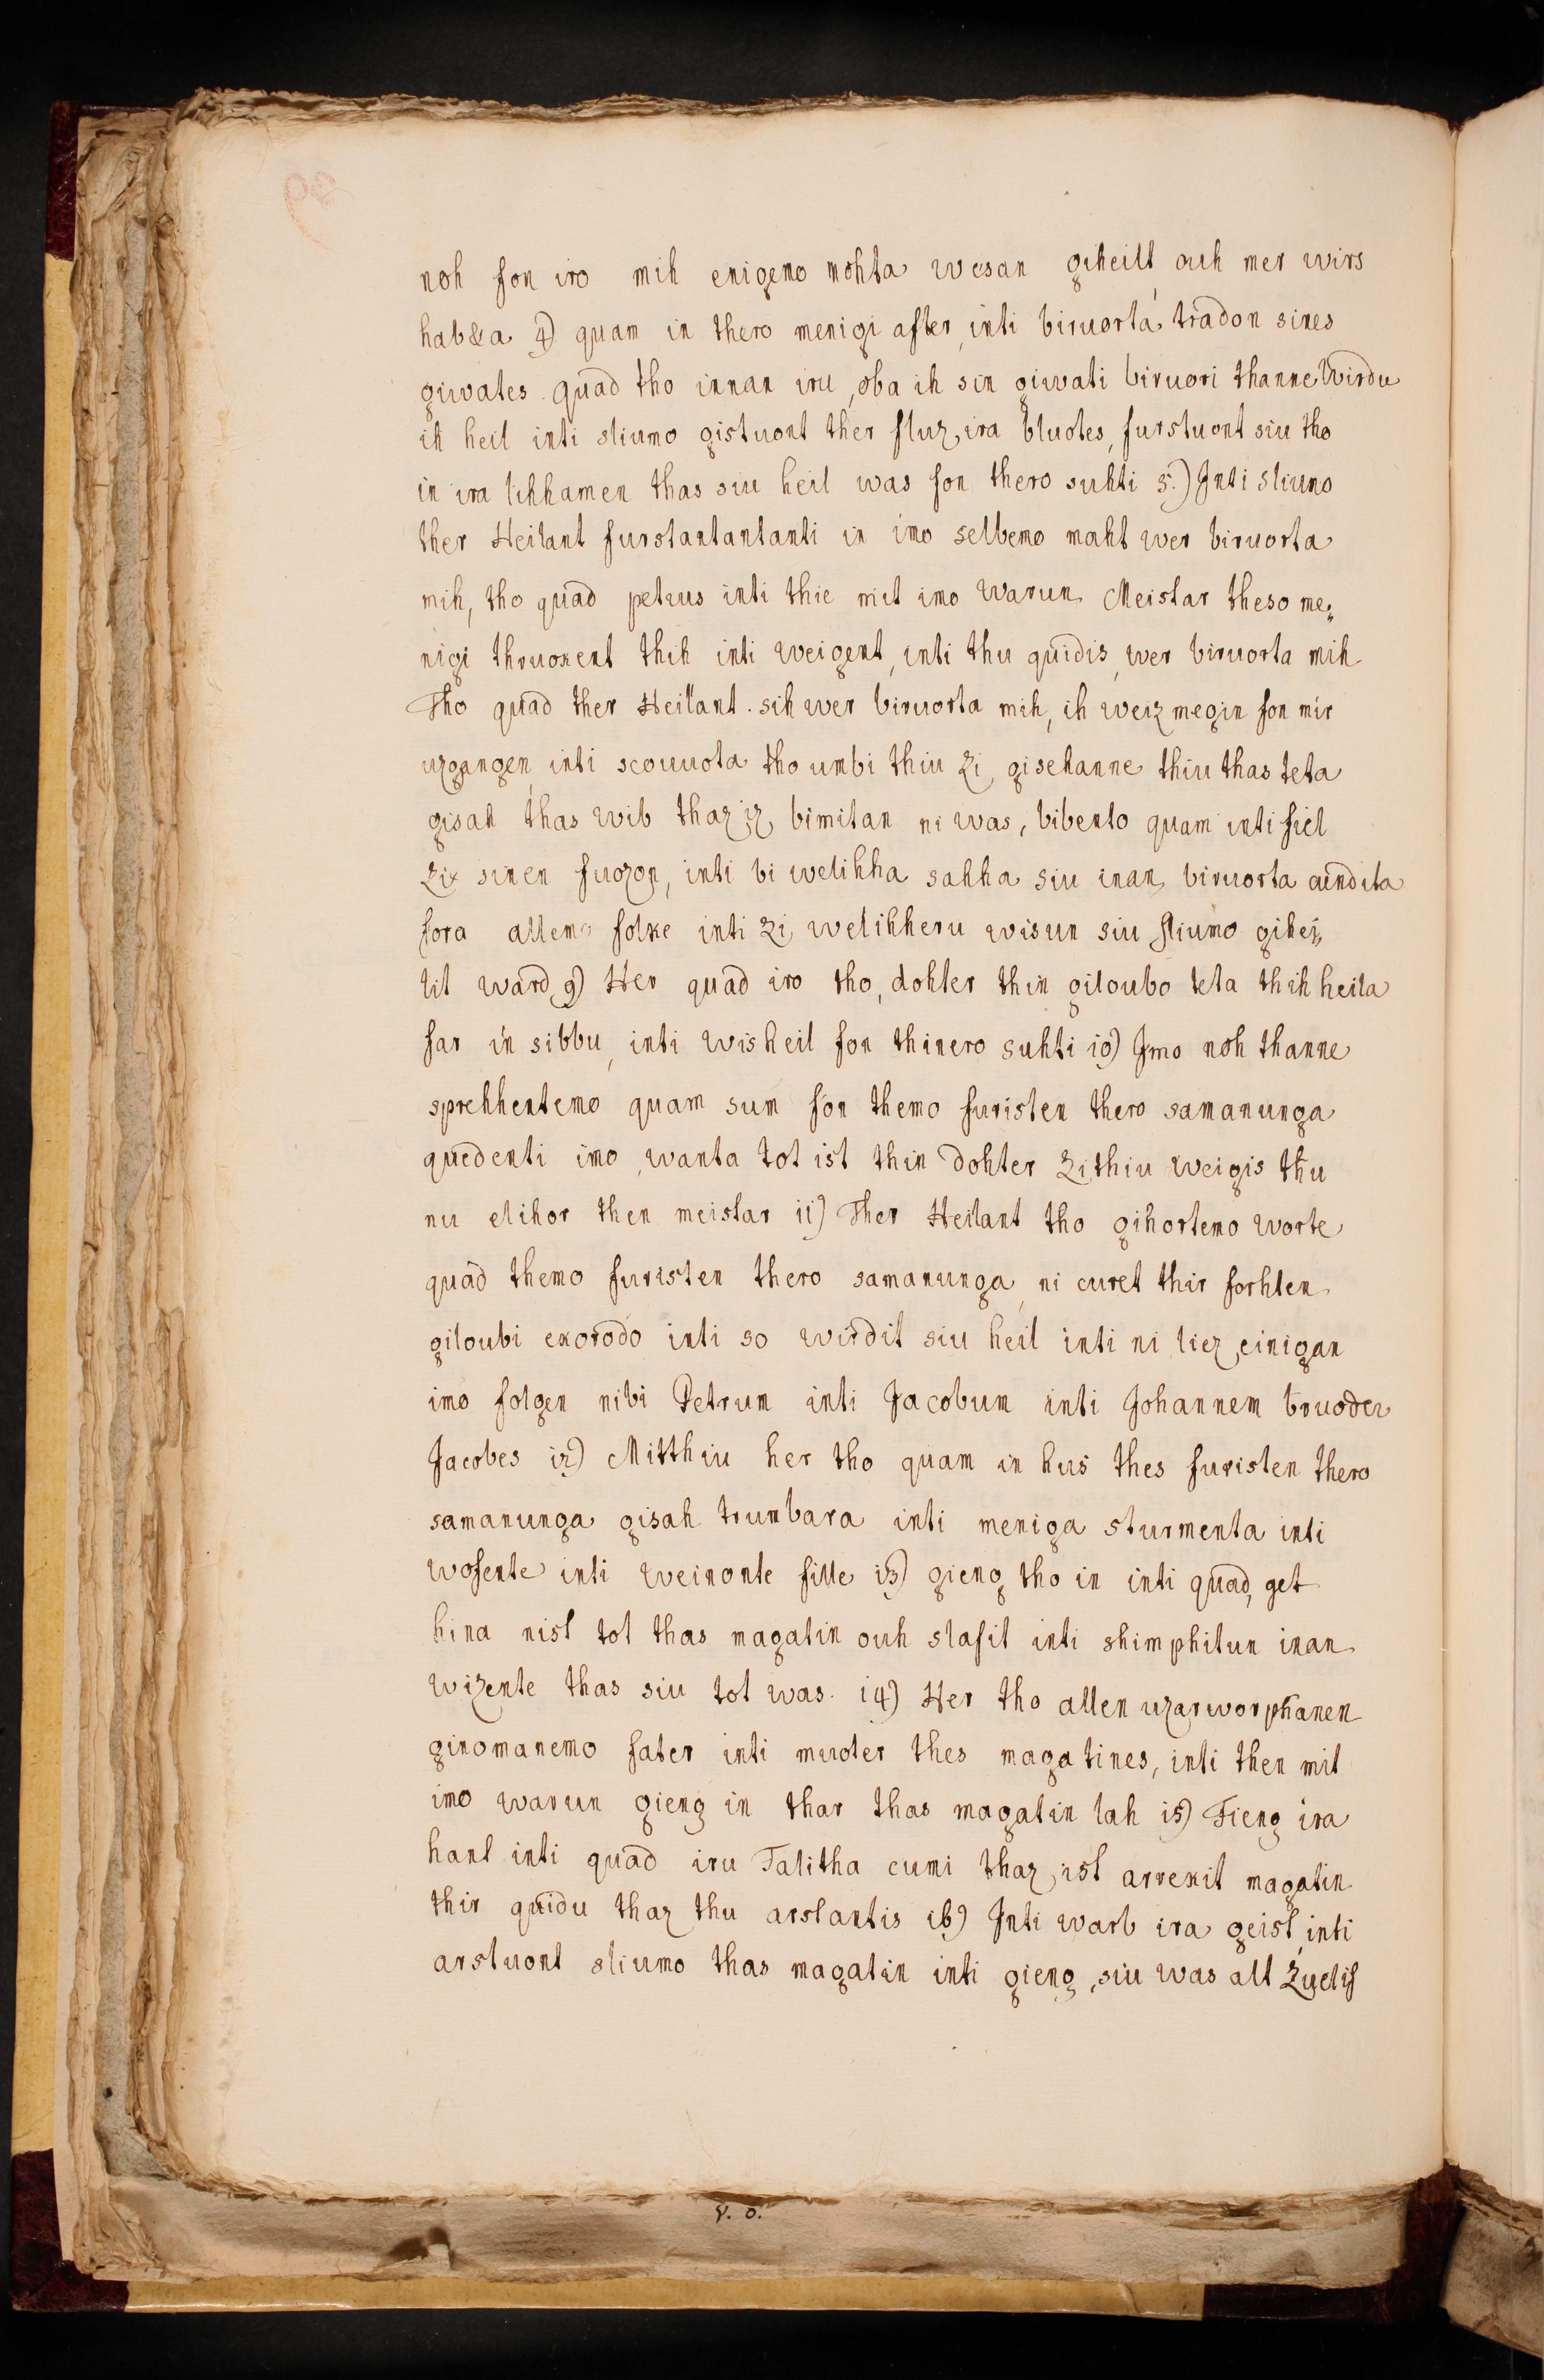 noh fon iro mih enigemo mohta wesan giheilt, ouh mer wirs
hab&a 4) quam in thero menigi after, inti biruorta tradon sines
giwates. quad tho innan iru, oba ih sin giwati biruori thanne wirdu
ih heil inti sliumo gistuont ther fluz, ira bluotes, furstuont siu tho
in ira lihhamen thas siu heil was fon thero suhti 5.) Inti sliuno
ther Heilant furstantantanti in imo selbemo maht wer biruorta
mih, tho quad petrus inti thie mit imo warun Meistar theso me=
nigi thruoxent thih inti weigent, inti thu quidis, wer biruorta mih
Tho quad ther Heilant. sih wer biruorta mih, ih weiz megin fon mir
uzgangen, inti scouuota tho umbi thiu zi gisehanne thiu thas teta
gisah thas wib thaz iz bimitan ni was, bibento quam inti fiel
zix sinen fuozon, inti bi welihha sahha siu inan biruorta aindita
fora allemo folke inti zi welihheru wisun siu sliumo gihei=
lit ward 9) Her quad iro tho, dohter thin giloubo teta thih heila
far in sibbu, inti wis heil fon thinero suhti 10) Imo noh thanne
sprehhentemo quam sum fon themo furisten thero samanunga
quedenti imo, wanta tot ist thin dohter zithiu weigis thu
nu elihor then meistar 11) Ther Heilant tho gihortemo worte
quad themo furisten thero samanunga, ni curet thir forhten
giloubi exorodo inti so wirdit siu heil inti ni liez einigan
imo folgen nibi Petrum inti Jacobum inti Johannem bruoder
Jacobes 12) Mitthiu her tho quam in hus thes furisten thero
samanunga gisah trumbara inti meniga sturmenta inti
wofente inti weinonte fille 13) gieng tho in inti quad, get
hina nist tot thas magatin ouh slafit inti shimphitun inan
wizente thas siu tot was. 14) Her tho allen uzarworphanen
ginomanemo fater inti muoter thes magatines, inti then mit
imo warun gieng in thar thas magatin lah 15) Fieng ira
hant inti quad iru Talitha cumi thaz ist arrexit magatin
thir quidu thaz thu arstantis 16) Inti warb ira geist, inti
arstuont sliumo thas magatin inti gieng, siu was alt zuelif
V. O.